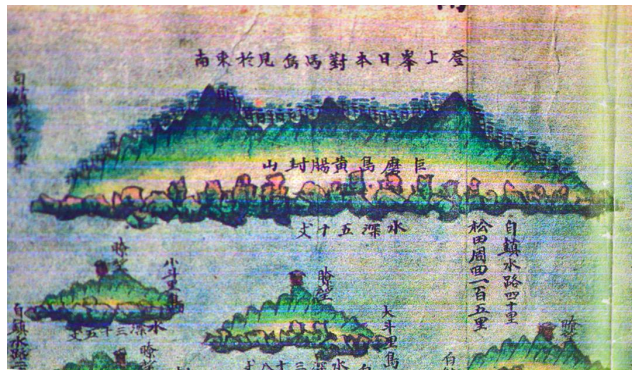 登上峯日本對馬島見於東南
巨磨島黃腸封山
水深五十丈
自鎭水路四十里
松田周回一百五里
瞭望
大斗里島
瞭望
小斗里島
瞭望
水深三十五丈
瞭望
自鎭水路